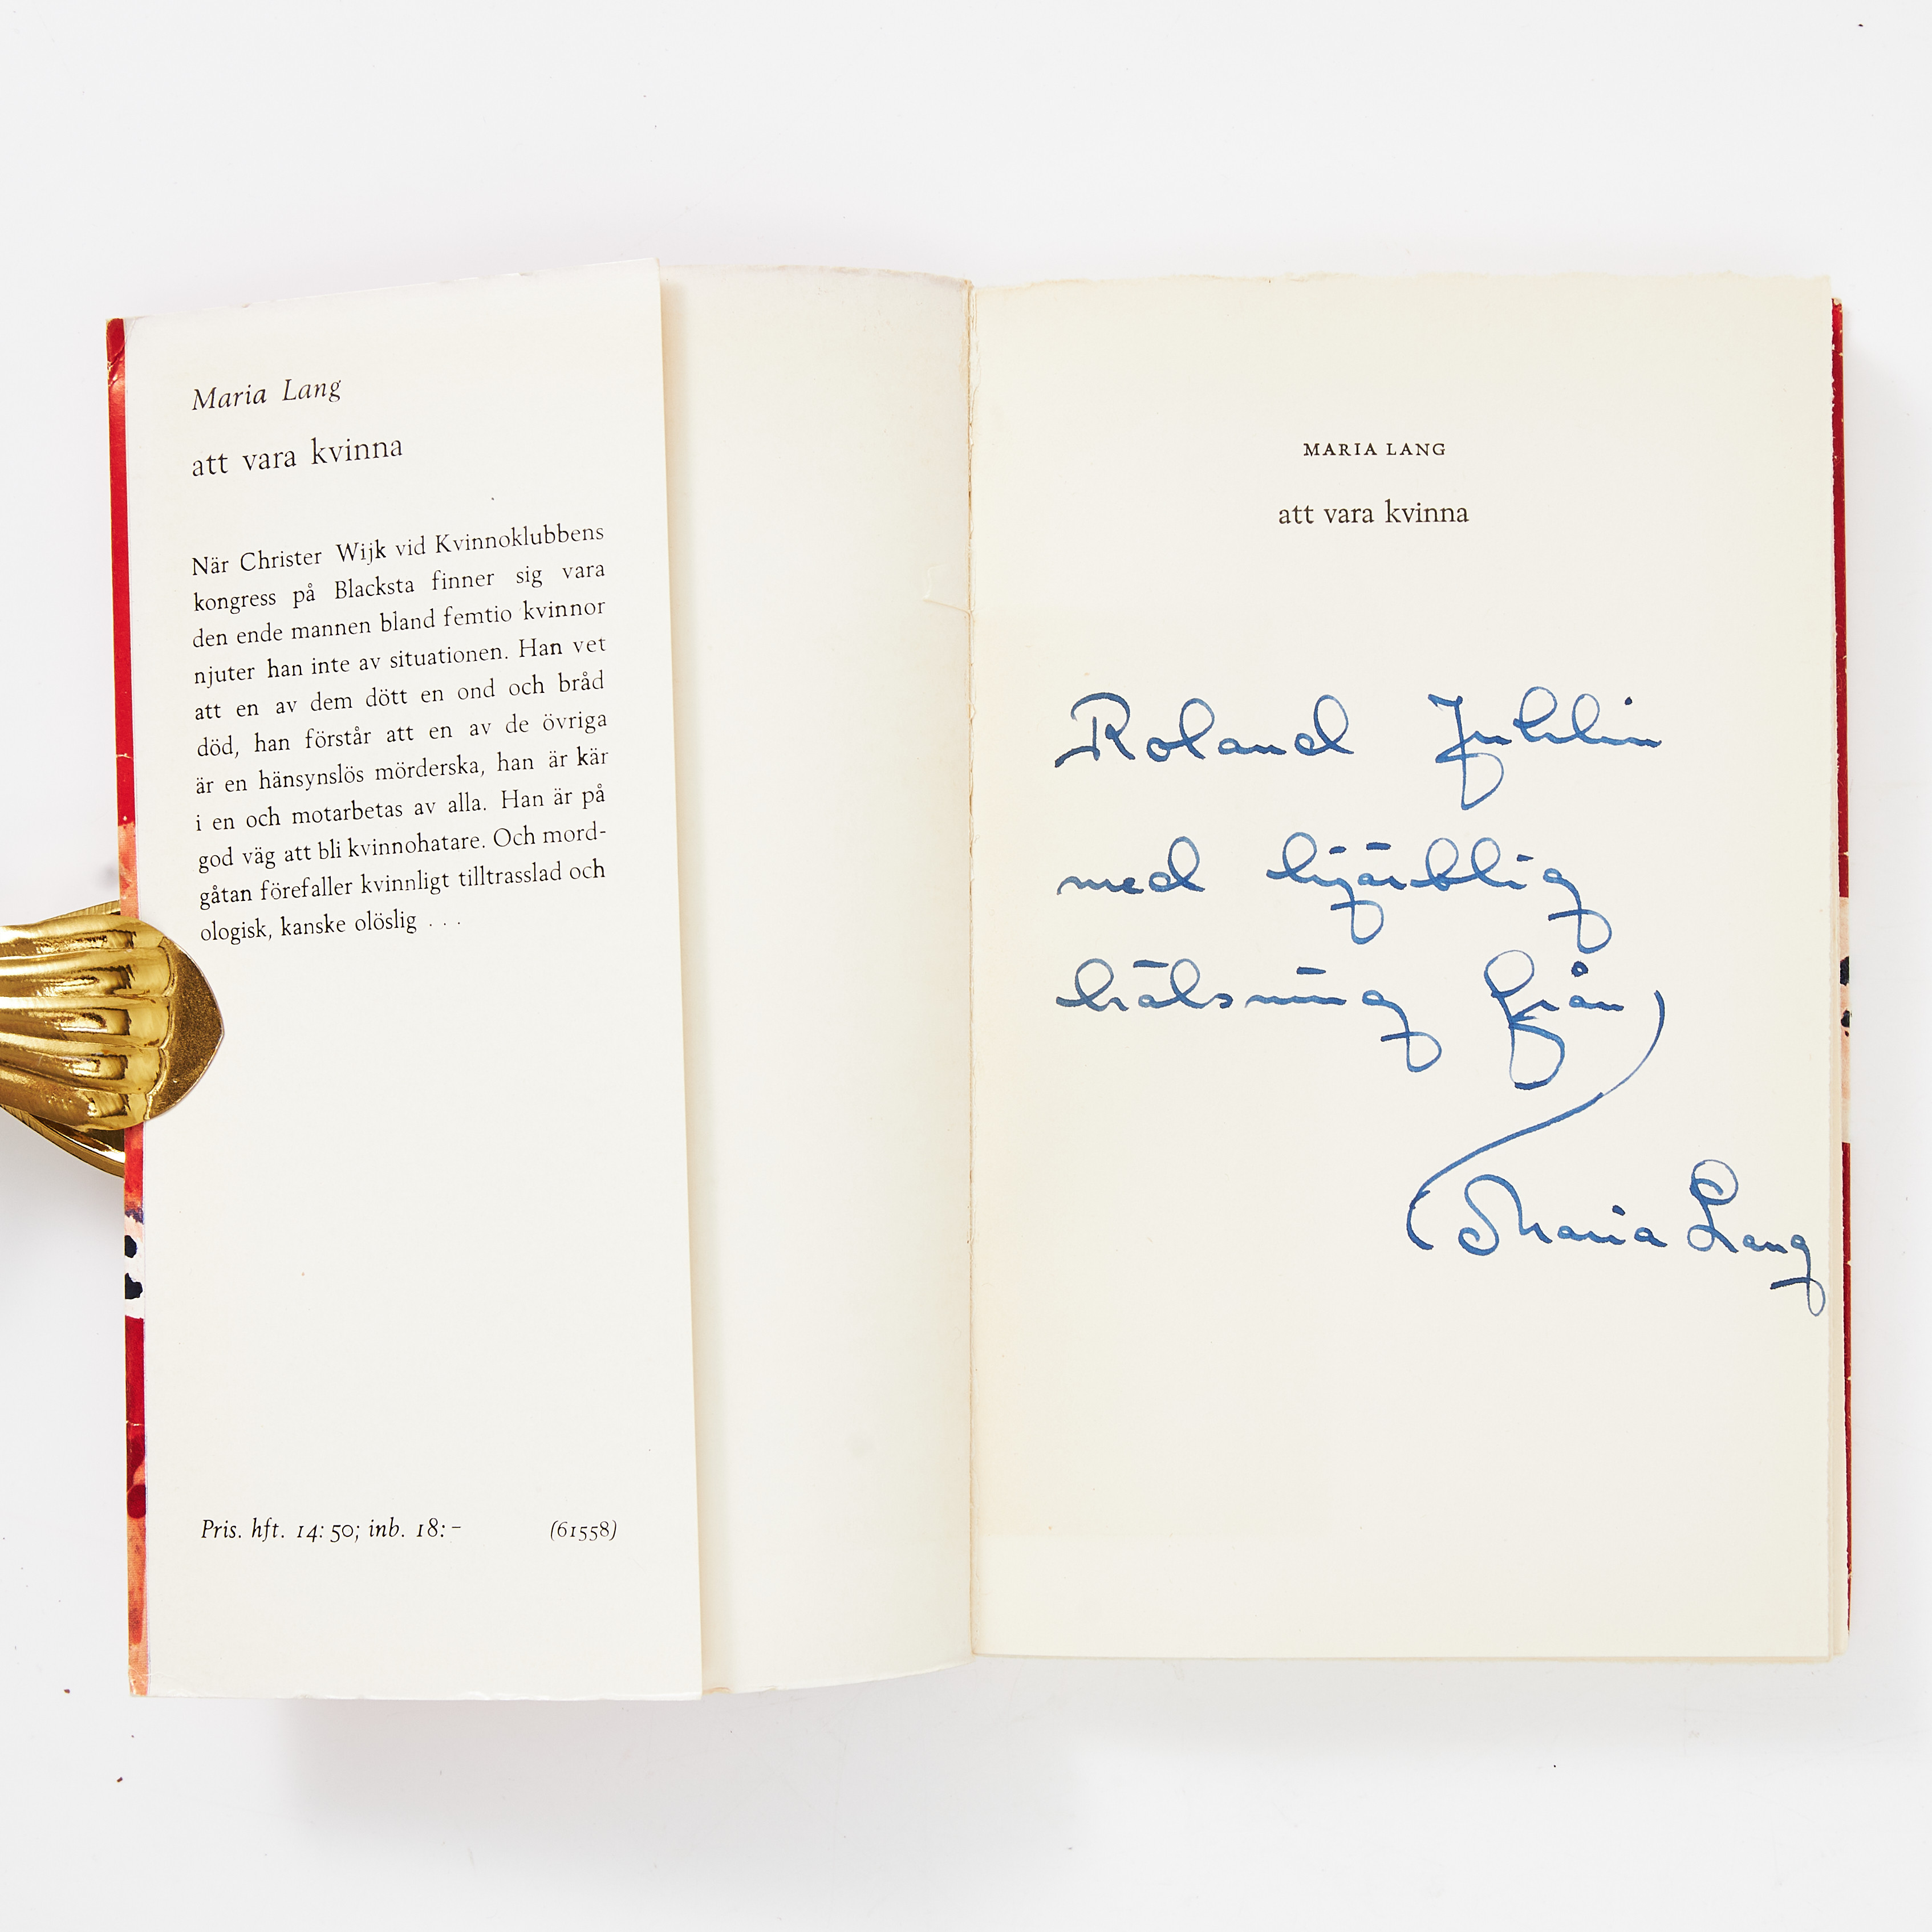 Maria Lang
att vara kvinna
När Christer Wijk vid Kvinnoklubbens
kongress på Blacksta finner sig vara
den ende mannen bland femtio kvinnor
njuter han inte av situationen. Han vet
att en av dem dött en ond och bråd
död, han förstår att en av de övriga
är en hänsynslös mörderska, han är kär
i en och motarbetas av alla. Han är på
god väg att bli kvinnohatare. Och mord-
gåtan förefaller kvinnligt tilltrasslad och
ologisk, kanske olöslig . . .
Pris. hft. 14: 50; inb. 18:– (61558)
MARIA LANG
att vara kvinna
Roland Juhlin
med hjärtlig
hälsning från
Maria Lang